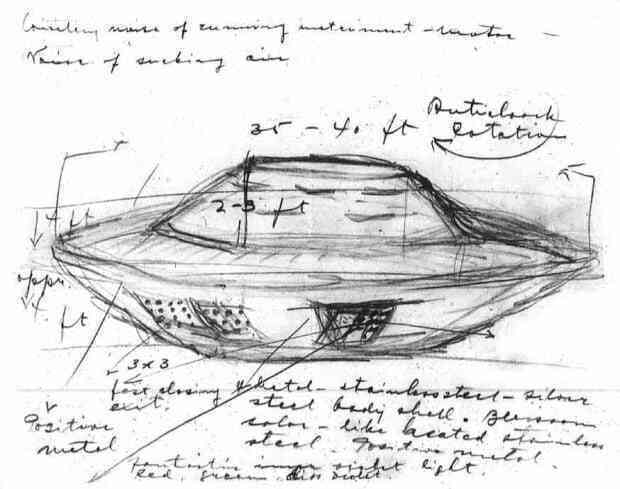 noise of running instrument - motor -
Noise of sucking air
35 - 40 ft
Anticlock
rotation
2-3 ft
4 ft
appr.
4 ft
3x3
fast closing
exit.
Metal - stainless steel - silver
steel body shell.
color - like heated stainless
steel. Positive metal.
Positive
metal
Fantastic inner violet light.
red, green violet.